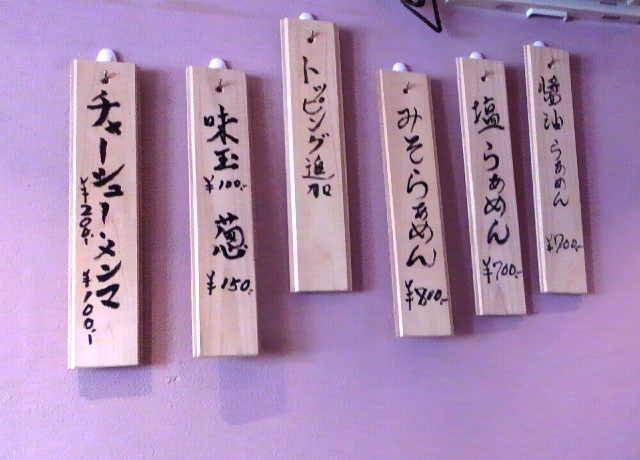 醤油らぁめん
¥700.-
塩らぁめん
¥700.-
みそらぁめん
¥800.-
トッピング追加
味玉
¥100.-
葱
¥150.-
チャーシュー・メンマ
¥200.- ¥100.-